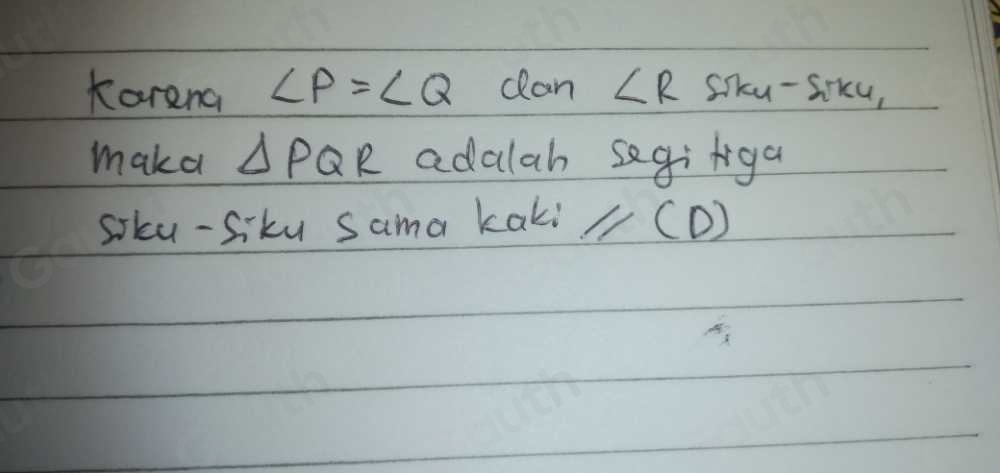 Karena ∠P = ∠Q dan ∠R siku-siku,
maka Δ PQR adalah segi tiga
siku-siku sama kaki // (D)